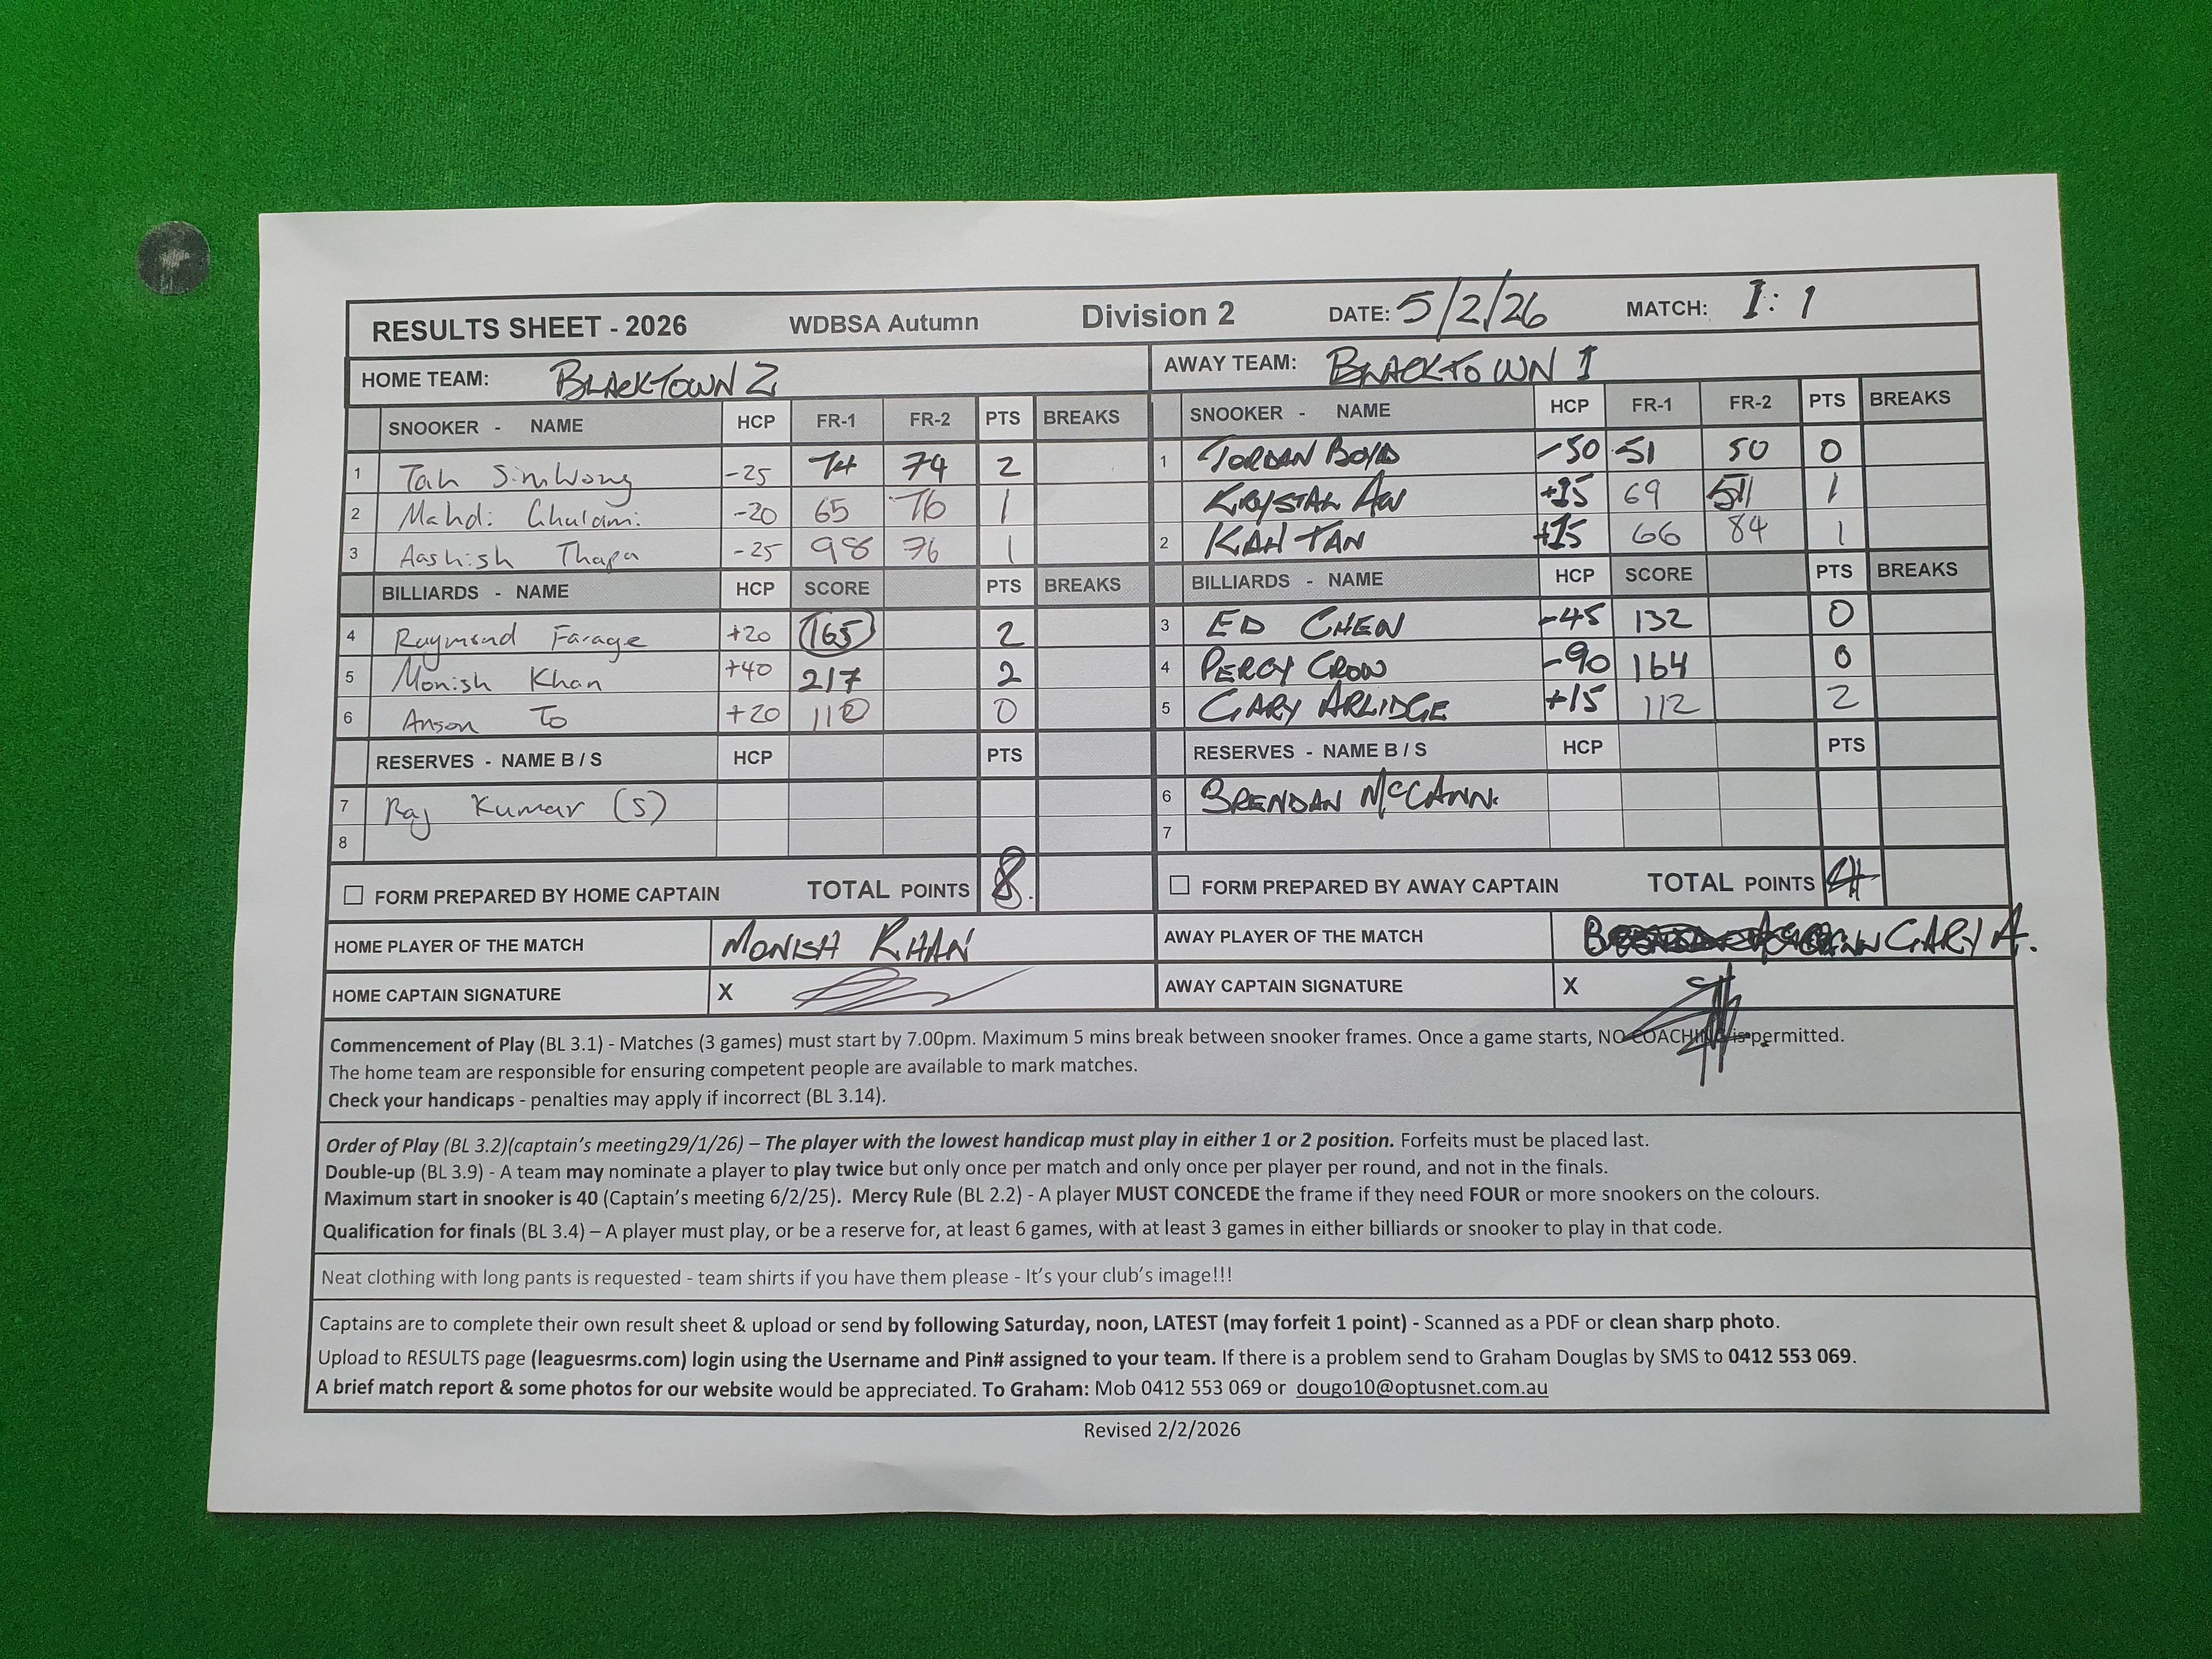 RESULTS SHEET - 2026 WDBSA Autumn Division 2 DATE: 5/2/26 MATCH: 1:1
HOME TEAM: BLACKTOWN 2 AWAY TEAM: BLACKTOWN 1
SNOOKER - NAME HCP FR-1 FR-2 PTS BREAKS SNOOKER - NAME HCP FR-1 FR-2 PTS BREAKS
1 Tah Sin Wong -25 74 74 2 1 JORDAN BOYD -50 51 50 0
2 Mahdi Ghulami -20 65 76 1 KRYSTAL AW +15 69 51 1
3 Aashish Thapa -25 98 76 1 2 KAH TAN +15 66 84 1
BILLIARDS - NAME HCP SCORE PTS BREAKS BILLIARDS - NAME HCP SCORE PTS BREAKS
4 Raymond Farage +20 165 2 3 ED CHEN -45 132 0
5 Monish Khan +40 217 2 4 PERCY CROW -90 164 0
6 Anson To +20 110 0 5 GARY ARLIDGE +15 112 2
RESERVES - NAME B / S HCP PTS RESERVES - NAME B / S HCP PTS
7 Raj Kumar (S) 6 BRENDAN McCANN.
8 7
☐ FORM PREPARED BY HOME CAPTAIN TOTAL POINTS 8. ☐ FORM PREPARED BY AWAY CAPTAIN TOTAL POINTS 4
HOME PLAYER OF THE MATCH MONISH KHAN AWAY PLAYER OF THE MATCH GARY A.
HOME CAPTAIN SIGNATURE X AWAY CAPTAIN SIGNATURE X
Commencement of Play (BL 3.1) - Matches (3 games) must start by 7.00pm. Maximum 5 mins break between snooker frames. Once a game starts, NO COACHING is permitted.
The home team are responsible for ensuring competent people are available to mark matches.
Check your handicaps - penalties may apply if incorrect (BL 3.14).
Order of Play (BL 3.2)(captain's meeting29/1/26) – The player with the lowest handicap must play in either 1 or 2 position. Forfeits must be placed last.
Double-up (BL 3.9) - A team may nominate a player to play twice but only once per match and only once per player per round, and not in the finals.
Maximum start in snooker is 40 (Captain's meeting 6/2/25). Mercy Rule (BL 2.2) - A player MUST CONCEDE the frame if they need FOUR or more snookers on the colours.
Qualification for finals (BL 3.4) – A player must play, or be a reserve for, at least 6 games, with at least 3 games in either billiards or snooker to play in that code.
Neat clothing with long pants is requested - team shirts if you have them please - It's your club's image!!!
Captains are to complete their own result sheet & upload or send by following Saturday, noon, LATEST (may forfeit 1 point) - Scanned as a PDF or clean sharp photo.
Upload to RESULTS page (leaguesrms.com) login using the Username and Pin# assigned to your team. If there is a problem send to Graham Douglas by SMS to 0412 553 069.
A brief match report & some photos for our website would be appreciated. To Graham: Mob 0412 553 069 or dougo10@optusnet.com.au
Revised 2/2/2026